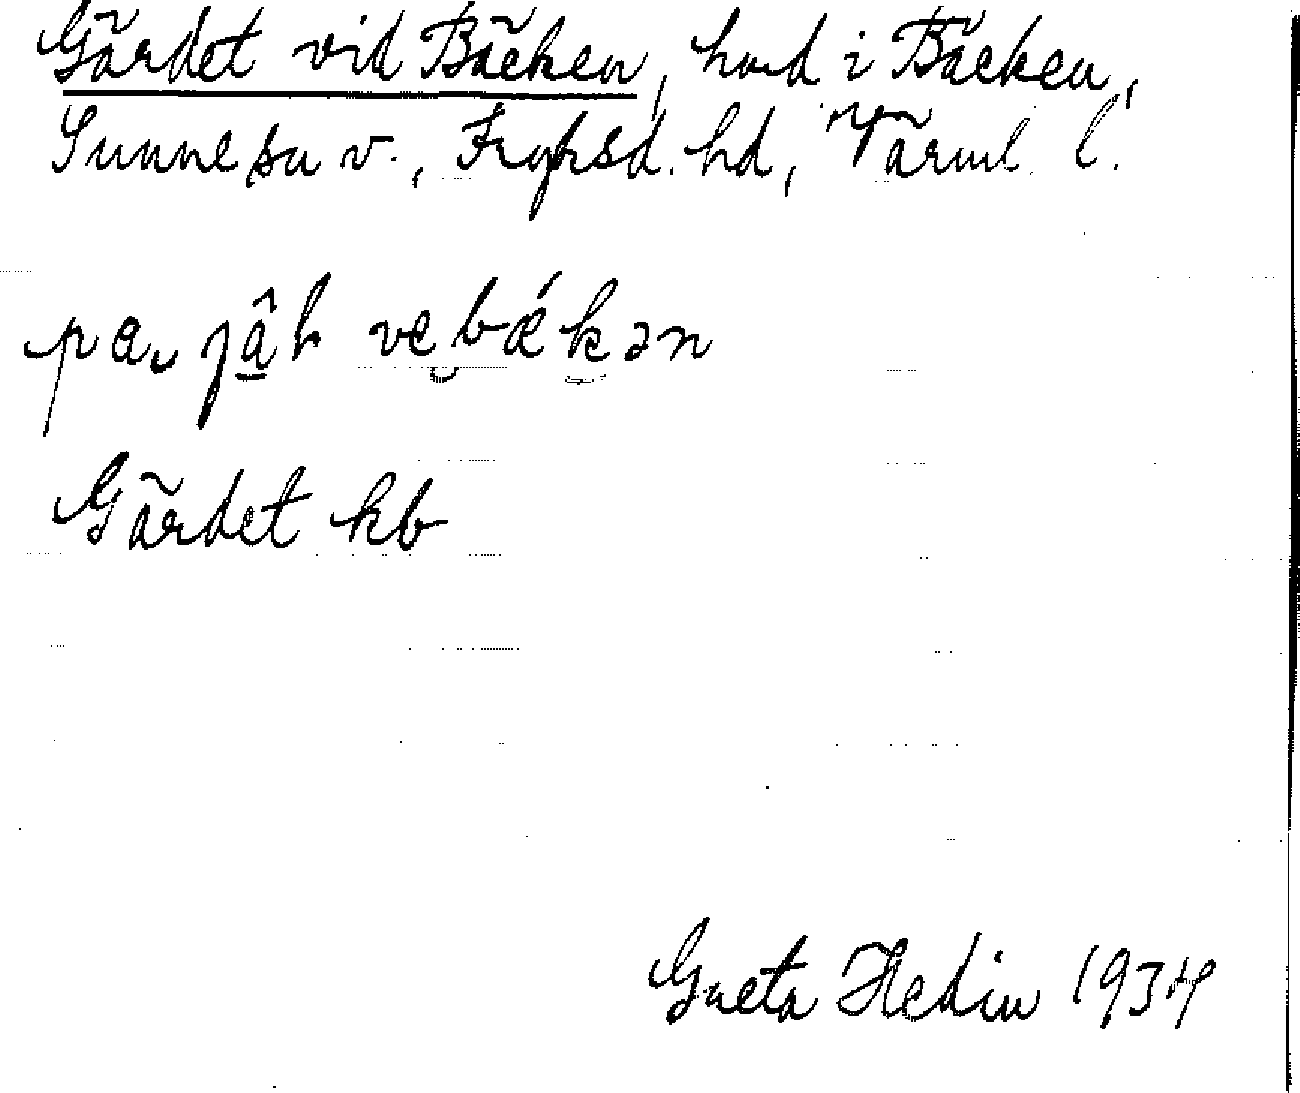 Gärdet vid Bäcken, hmd i Bäcken,
Sunne sn v., Fryksd. hd, Värml. l.
pa jâ̱h ve bǽkən
Gärdet kb
Greta Hedin 1934